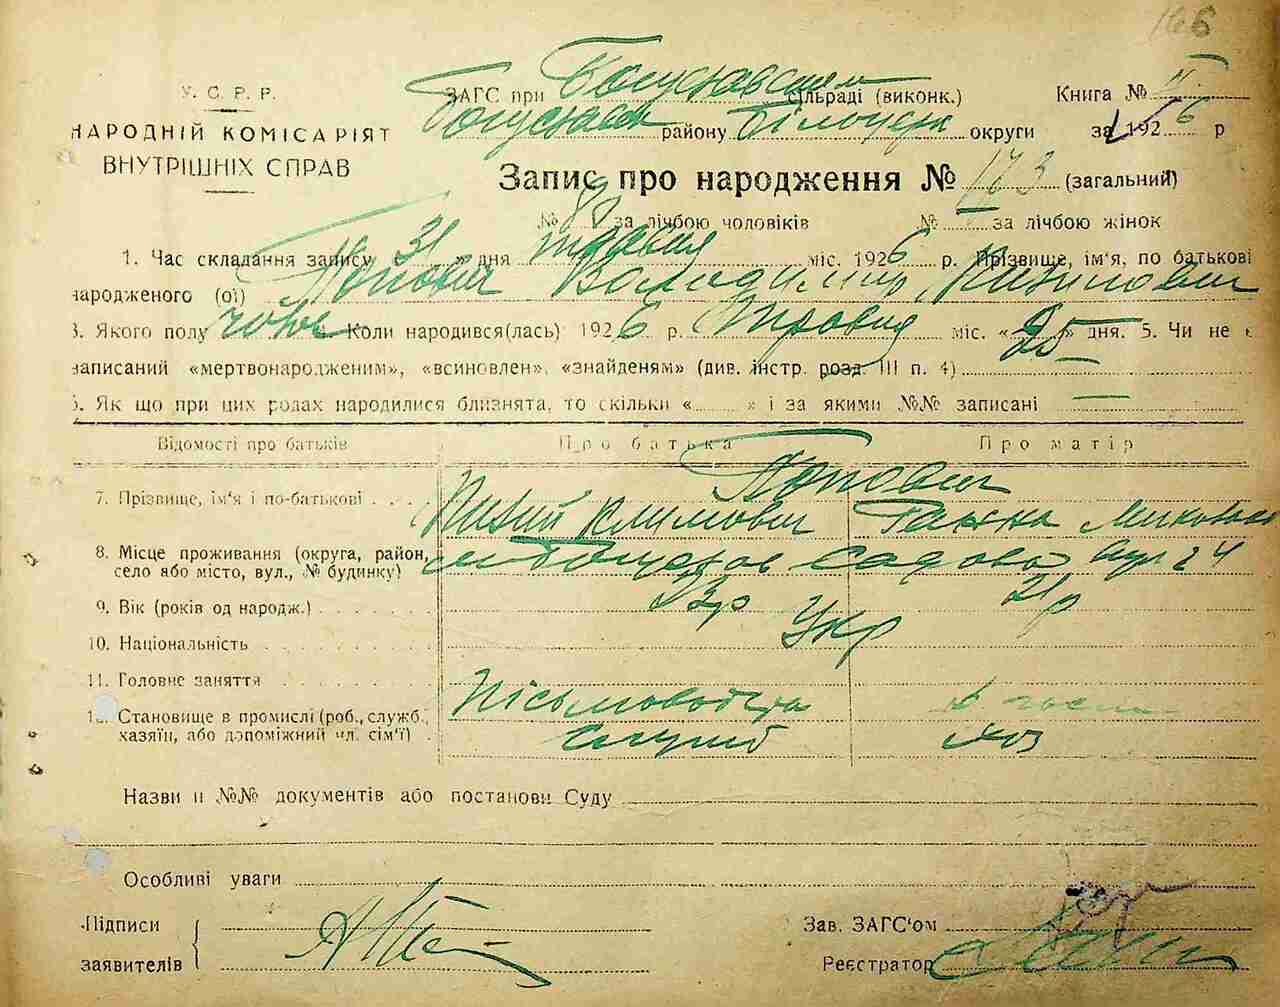 166
У. С. Р. Р.
НАРОДНІЙ КОМІСАРІЯТ
ВНУТРІШНІХ СПРАВ
ЗАГС при сільраді (виконк.) Книга № II
району округи за 1926 р
Запис про народження № 173 (загальний)
№ за лічбою чоловіків № за лічбою жінок
1. Час складання запису 31 дня травня міс. 1926 р. Прізвище, ім'я, по батькові
народженого (ої) Попович Володимир
3. Якого полу чолов Коли народився(лась) 1926 р. травня міс. «25» дня. 5. Чи не є
записаний «мертвонародженим», «всиновлен», «знайденям» (див. інстр. розд. III п. 4)
6. Як що при цих родах народилися близнята, то скільки « » і за якими №№ записані
Відомості про батьків Про батька Про матір
7. Прізвище, ім'я і по-батькові Попович
Климович Ганна Микол
8. Місце проживання (округа, район,
село або місто, вул., № будинку) Садова 24
9. Вік (років од народж.) 23р 21р
10. Національність Укр
11. Головне заняття Письмоводит
12. Становище в промислі (роб., служб.,
хазяїн, або допоміжний чл. сім'ї) служб
Назви и №№ документів або постанови Суду
Особливі уваги
Підписи
заявителів
Зав. ЗАГС'ом
Реєстратор